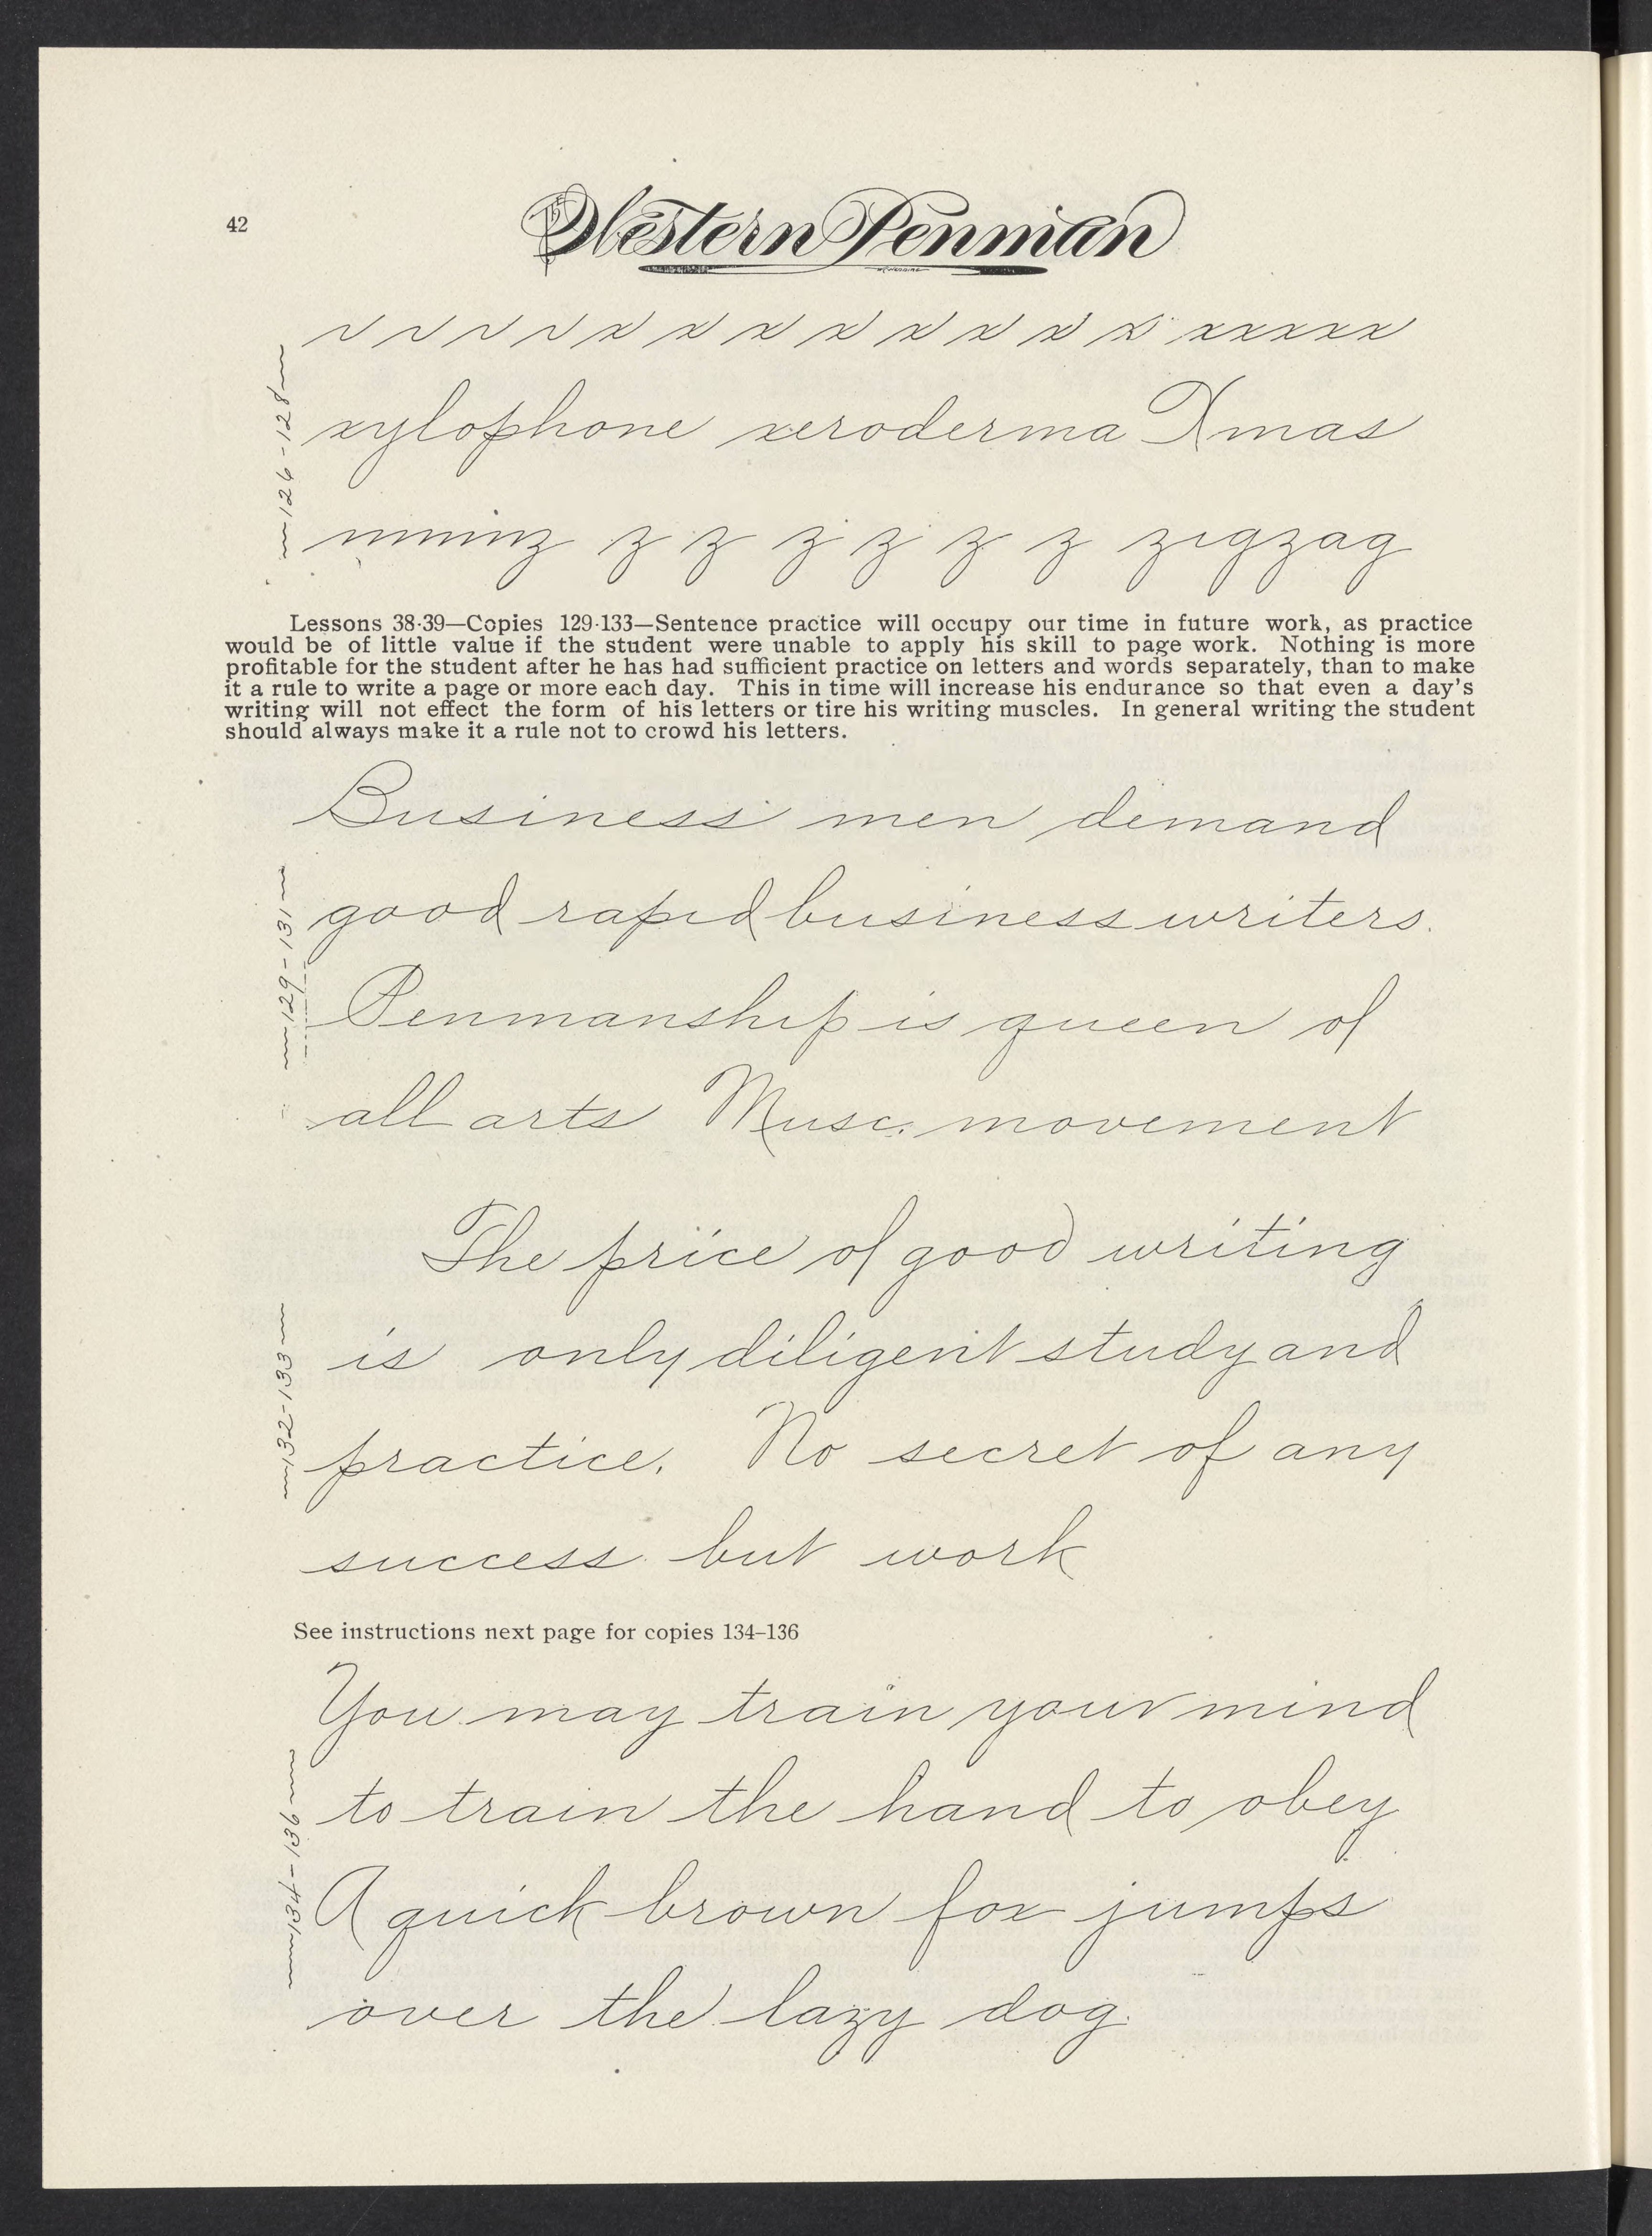 42
The Western Penman
x x x x x x x x x x x x x
xylophone xeroderma Xmas
mmmz z z z z z z zigzag
126-128
Lessons 38-39—Copies 129-133—Sentence practice will occupy our time in future work, as practice
would be of little value if the student were unable to apply his skill to page work. Nothing is more
profitable for the student after he has had sufficient practice on letters and words separately, than to make
it a rule to write a page or more each day. This in time will increase his endurance so that even a day's
writing will not effect the form of his letters or tire his writing muscles. In general writing the student
should always make it a rule not to crowd his letters.
Business men demand
good rapid business writers.
Penmanship is queen of
all arts Musc. movement
129-131
The price of good writing
is only diligent study and
practice. No secret of any
success but work
132-133
See instructions next page for copies 134–136
You may train your mind
to train the hand to obey
A quick brown fox jumps
over the lazy dog.
134-136